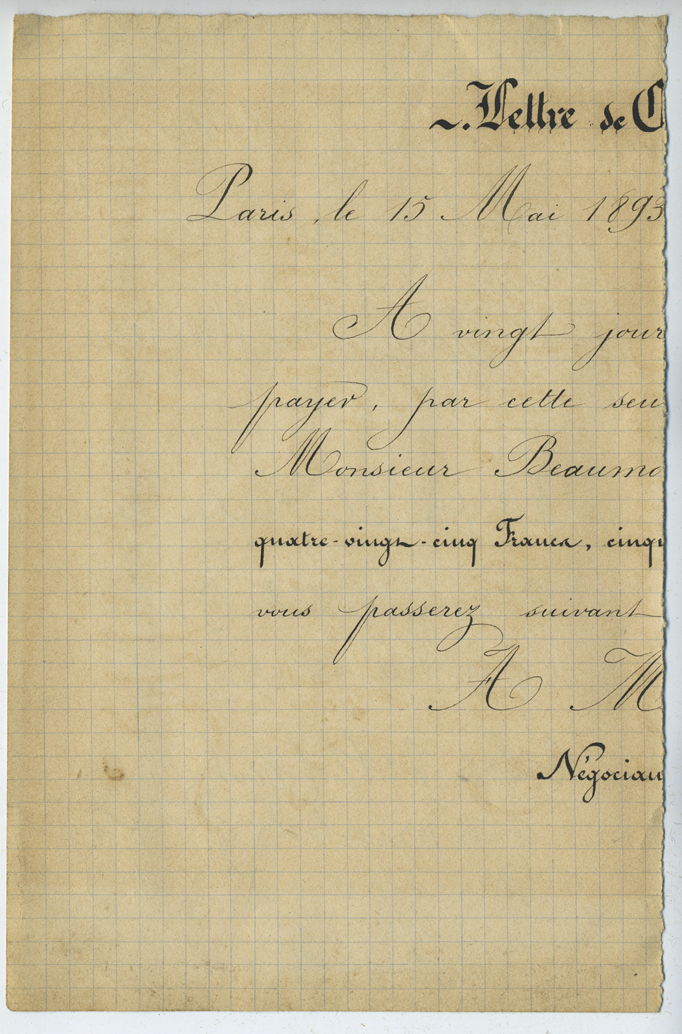 ~. Lettre de C
Paris, le 15 Mai 1893
A vingt jour
payer, par cette seu
Monsieur Beaumo
quatre-vingt-cinq Francs, cinqu
vous passerez suivant
A M
Négocian